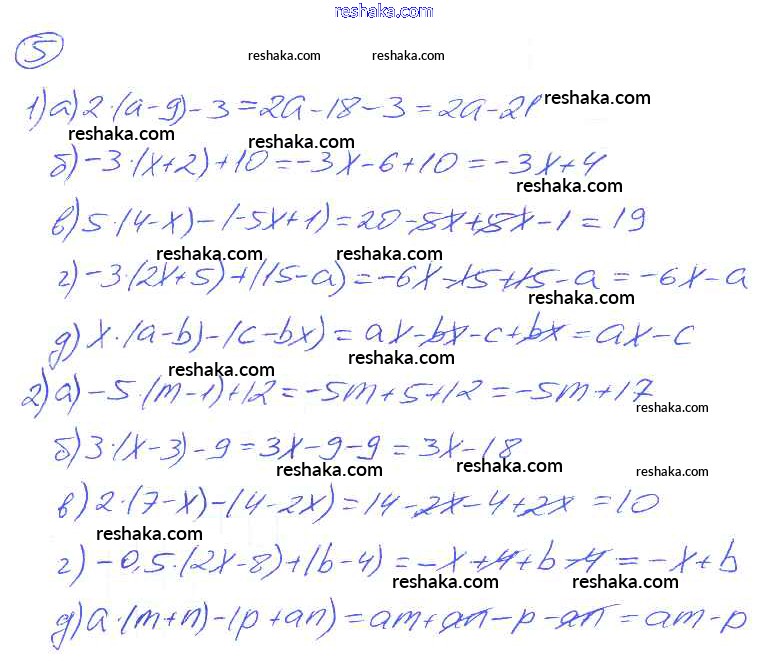 reshaka.com
5
reshaka.com reshaka.com
1) а) 2·(a-9)-3=2a-18-3=2a-21 reshaka.com
reshaka.com reshaka.com
б) -3·(x+2)+10=-3x-6+10=-3x+4
reshaka.com
в) 5·(4-x)-(-5x+1)=20-5x+5x-1=19
reshaka.com reshaka.com
г) -3·(2x+5)+(15-a)=-6x-15+15-a=-6x-a
reshaka.com
д) x·(a-b)-(c-bx)=ax-bx-c+bx=ax-c
reshaka.com reshaka.com
2) а) -5·(m-1)+12=-5m+5+12=-5m+17
reshaka.com
б) 3·(x-3)-9=3x-9-9=3x-18
reshaka.com reshaka.com reshaka.com
в) 2·(7-x)-(4-2x)=14-2x-4+2x=10
reshaka.com
г) -0,5·(2x-8)+(b-4)=-x+4+b-4=-x+b
reshaka.com reshaka.com
д) a·(m+n)-(p+an)=am+an-p-an=am-p